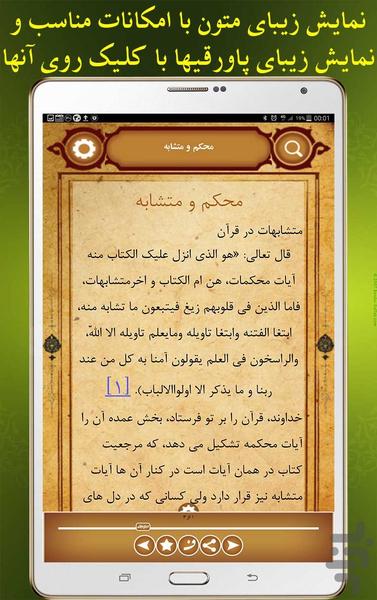 نمایش زیبای متون با امکانات مناسب و
نمایش زیبای پاورقیها با کلیک روی آنها
19% 00:01
محکم و متشابه
محکم و متشابه
متشابهات در قرآن
قال تعالی: «هو الذی انزل علیک الکتاب منه
آیات محکمات، هن ام الکتاب و اخرمتشابهات،
فاما الذین فی قلوبهم زیغ فیتبعون ما تشابه منه،
ابتغا الفتنه وابتغا تاویله ومایعلم تاویله الا الله
والراسخون فی العلم یقولون آمنا به کل من عند
ربنا و ما یذکر الا اولواالالباب). [۱]
خداوند، قرآن را بر تو فرستاد، بخش عمده آن را
آیات محکمه تشکیل می دهد، که مرجعیت
کتاب در همان آیات است در کنار آن ها آیات
متشابه نیز قرار دارد ولی کسانی که در دل های
بازار